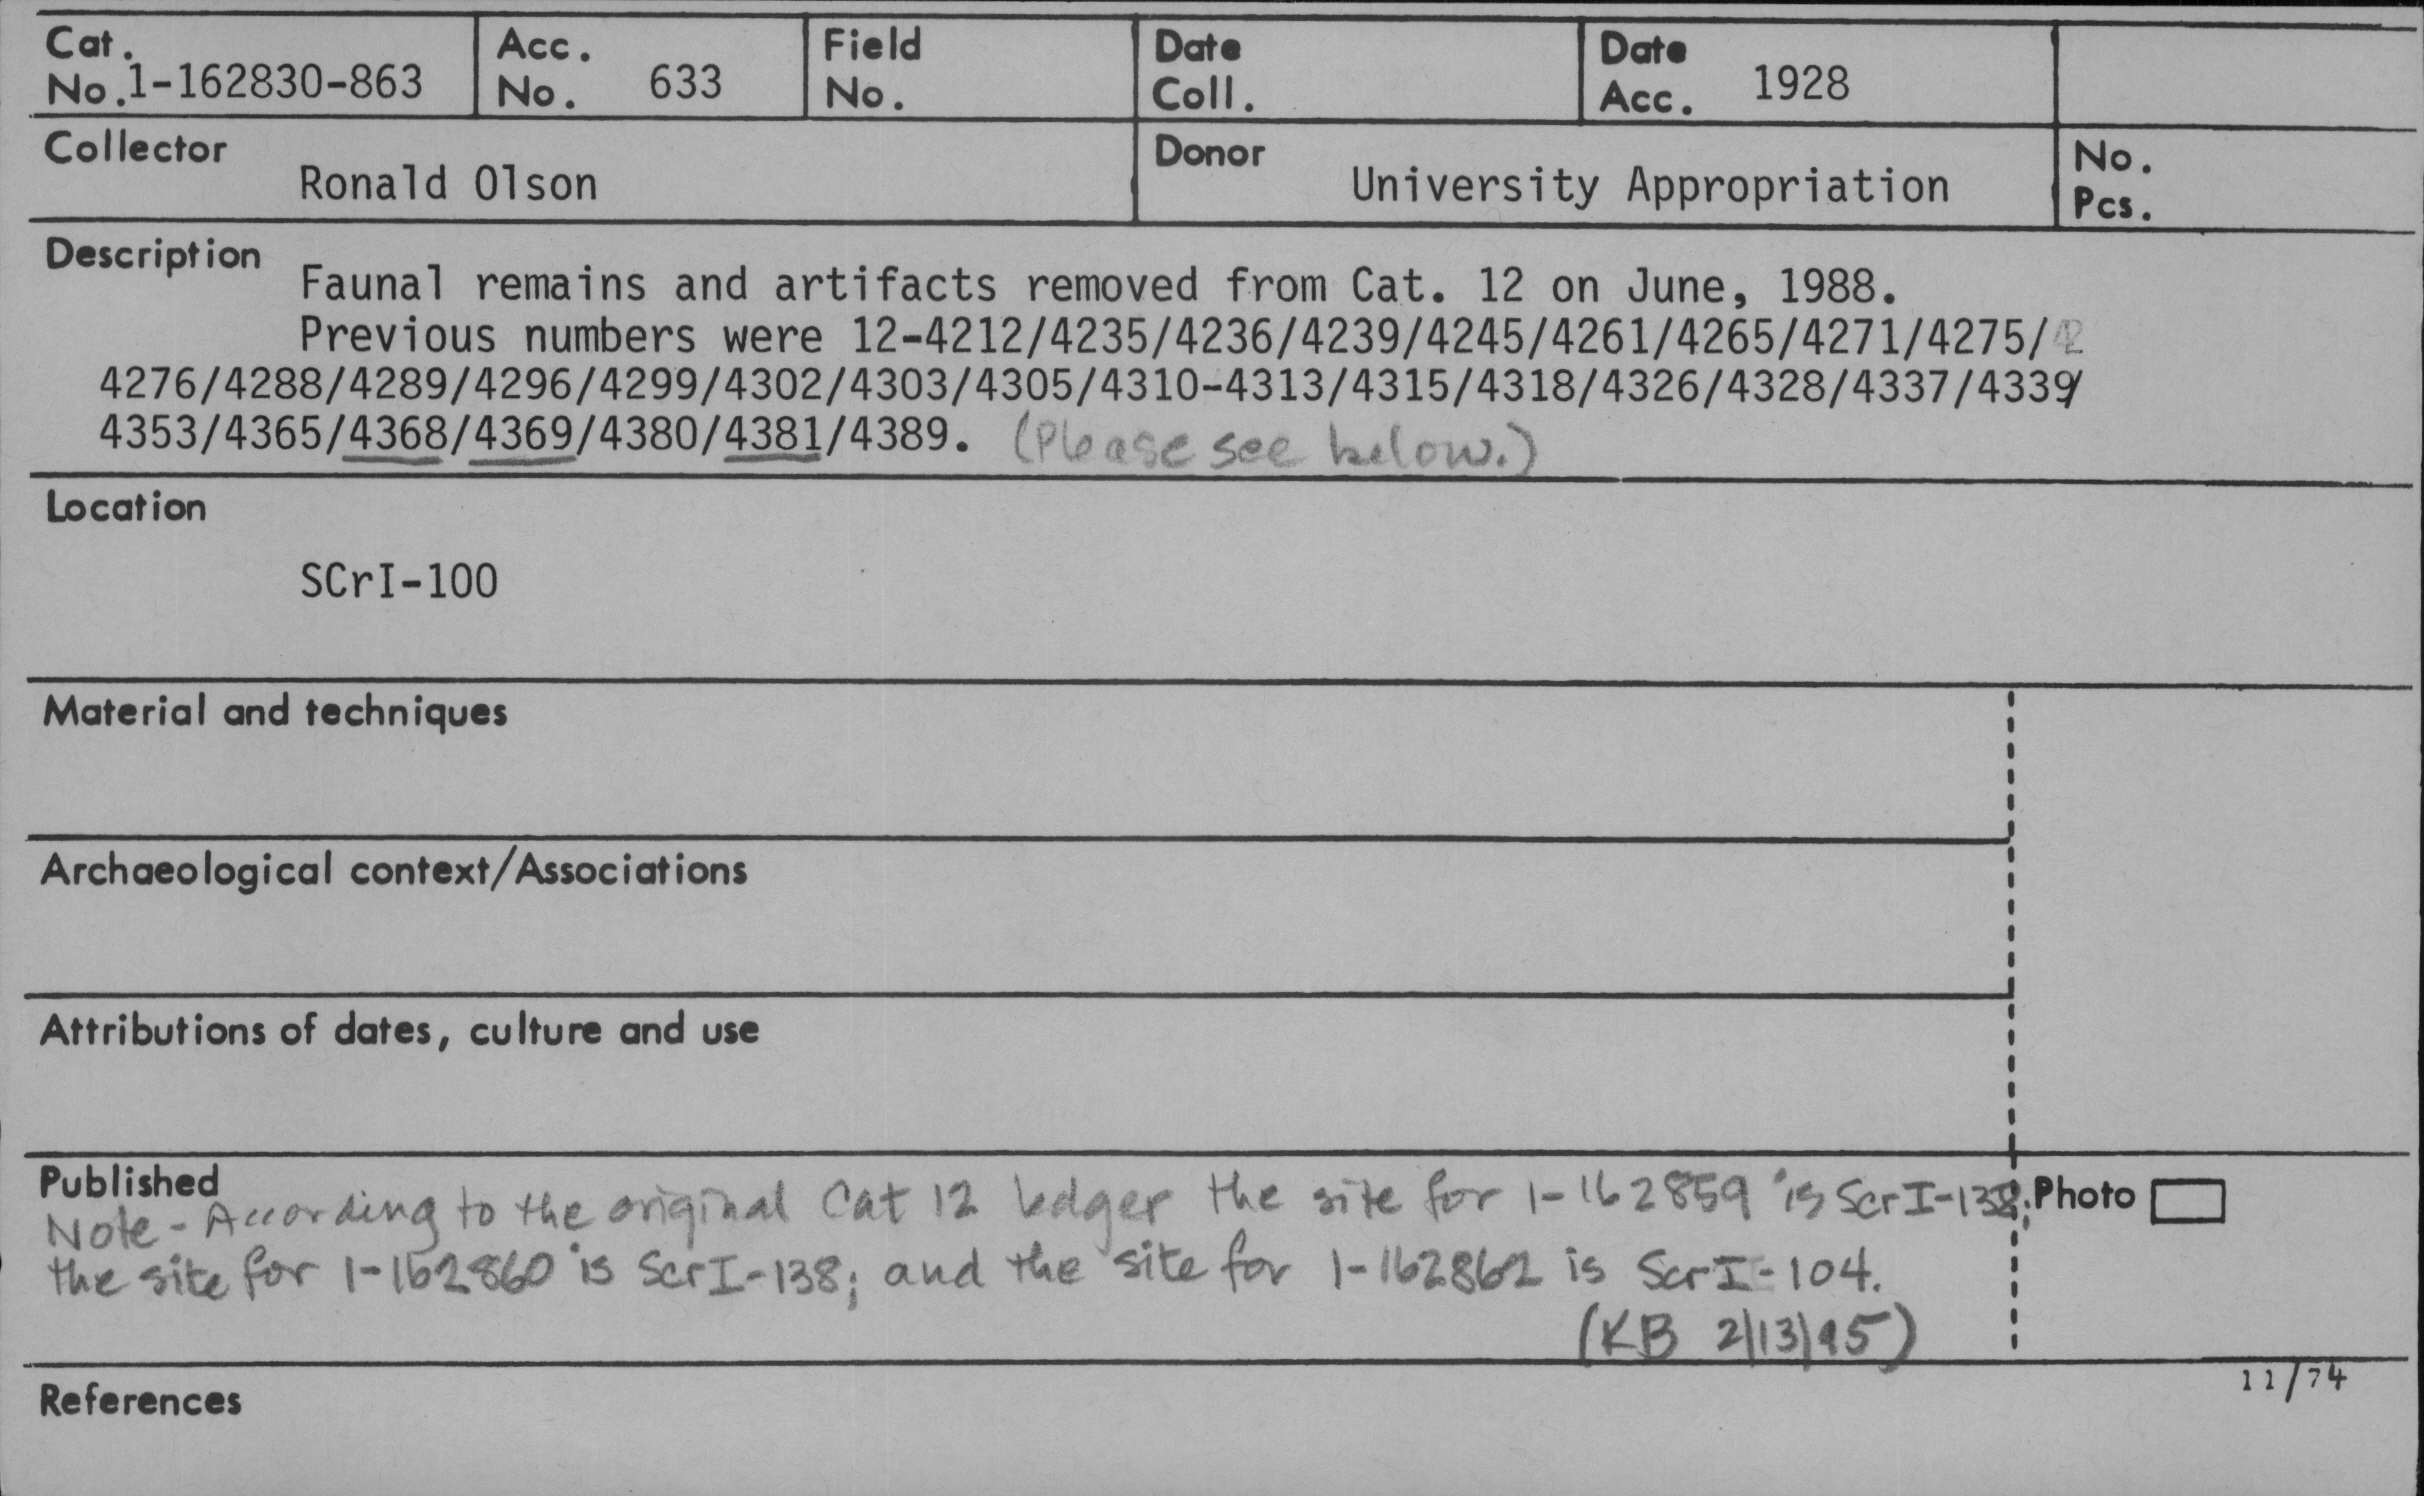 Cat. No. 1-162830-863
Acc. No. 633
Field No.
Date Coll.
Date Acc. 1928
Collector
Ronald Olson
Donor
University Appropriation
No. Pcs.
Description
Faunal remains and artifacts removed from Cat. 12 on June, 1988.
Previous numbers were 12-4212/4235/4236/4239/4245/4261/4265/4271/4275/
4276/4288/4289/4296/4299/4302/4303/4305/4310-4313/4315/4318/4326/4328/4337/4339/
4353/4365/4368/4369/4380/4381/4389. (Please see below.)
Location
SCrI-100
Material and techniques
Archaeological context/Associations
Attributions of dates, culture and use
Published
Note - According to the original Cat 12 ledger the site for 1-162859 is ScrI-138;
the site for 1-162860 is ScrI-138; and the site for 1-162862 is ScrI-104.
(KB 2/13/95)
Photo
References
11/74